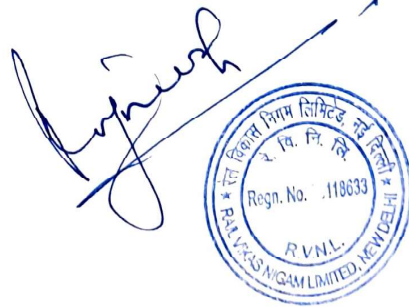 * रेल विकास निगम लिमिटेड, नई दिल्ली *
रे. वि. नि. लि.
Regn. No. .118633
R V N L.
RAIL VIKAS NIGAM LIMITED, NEW DELHI